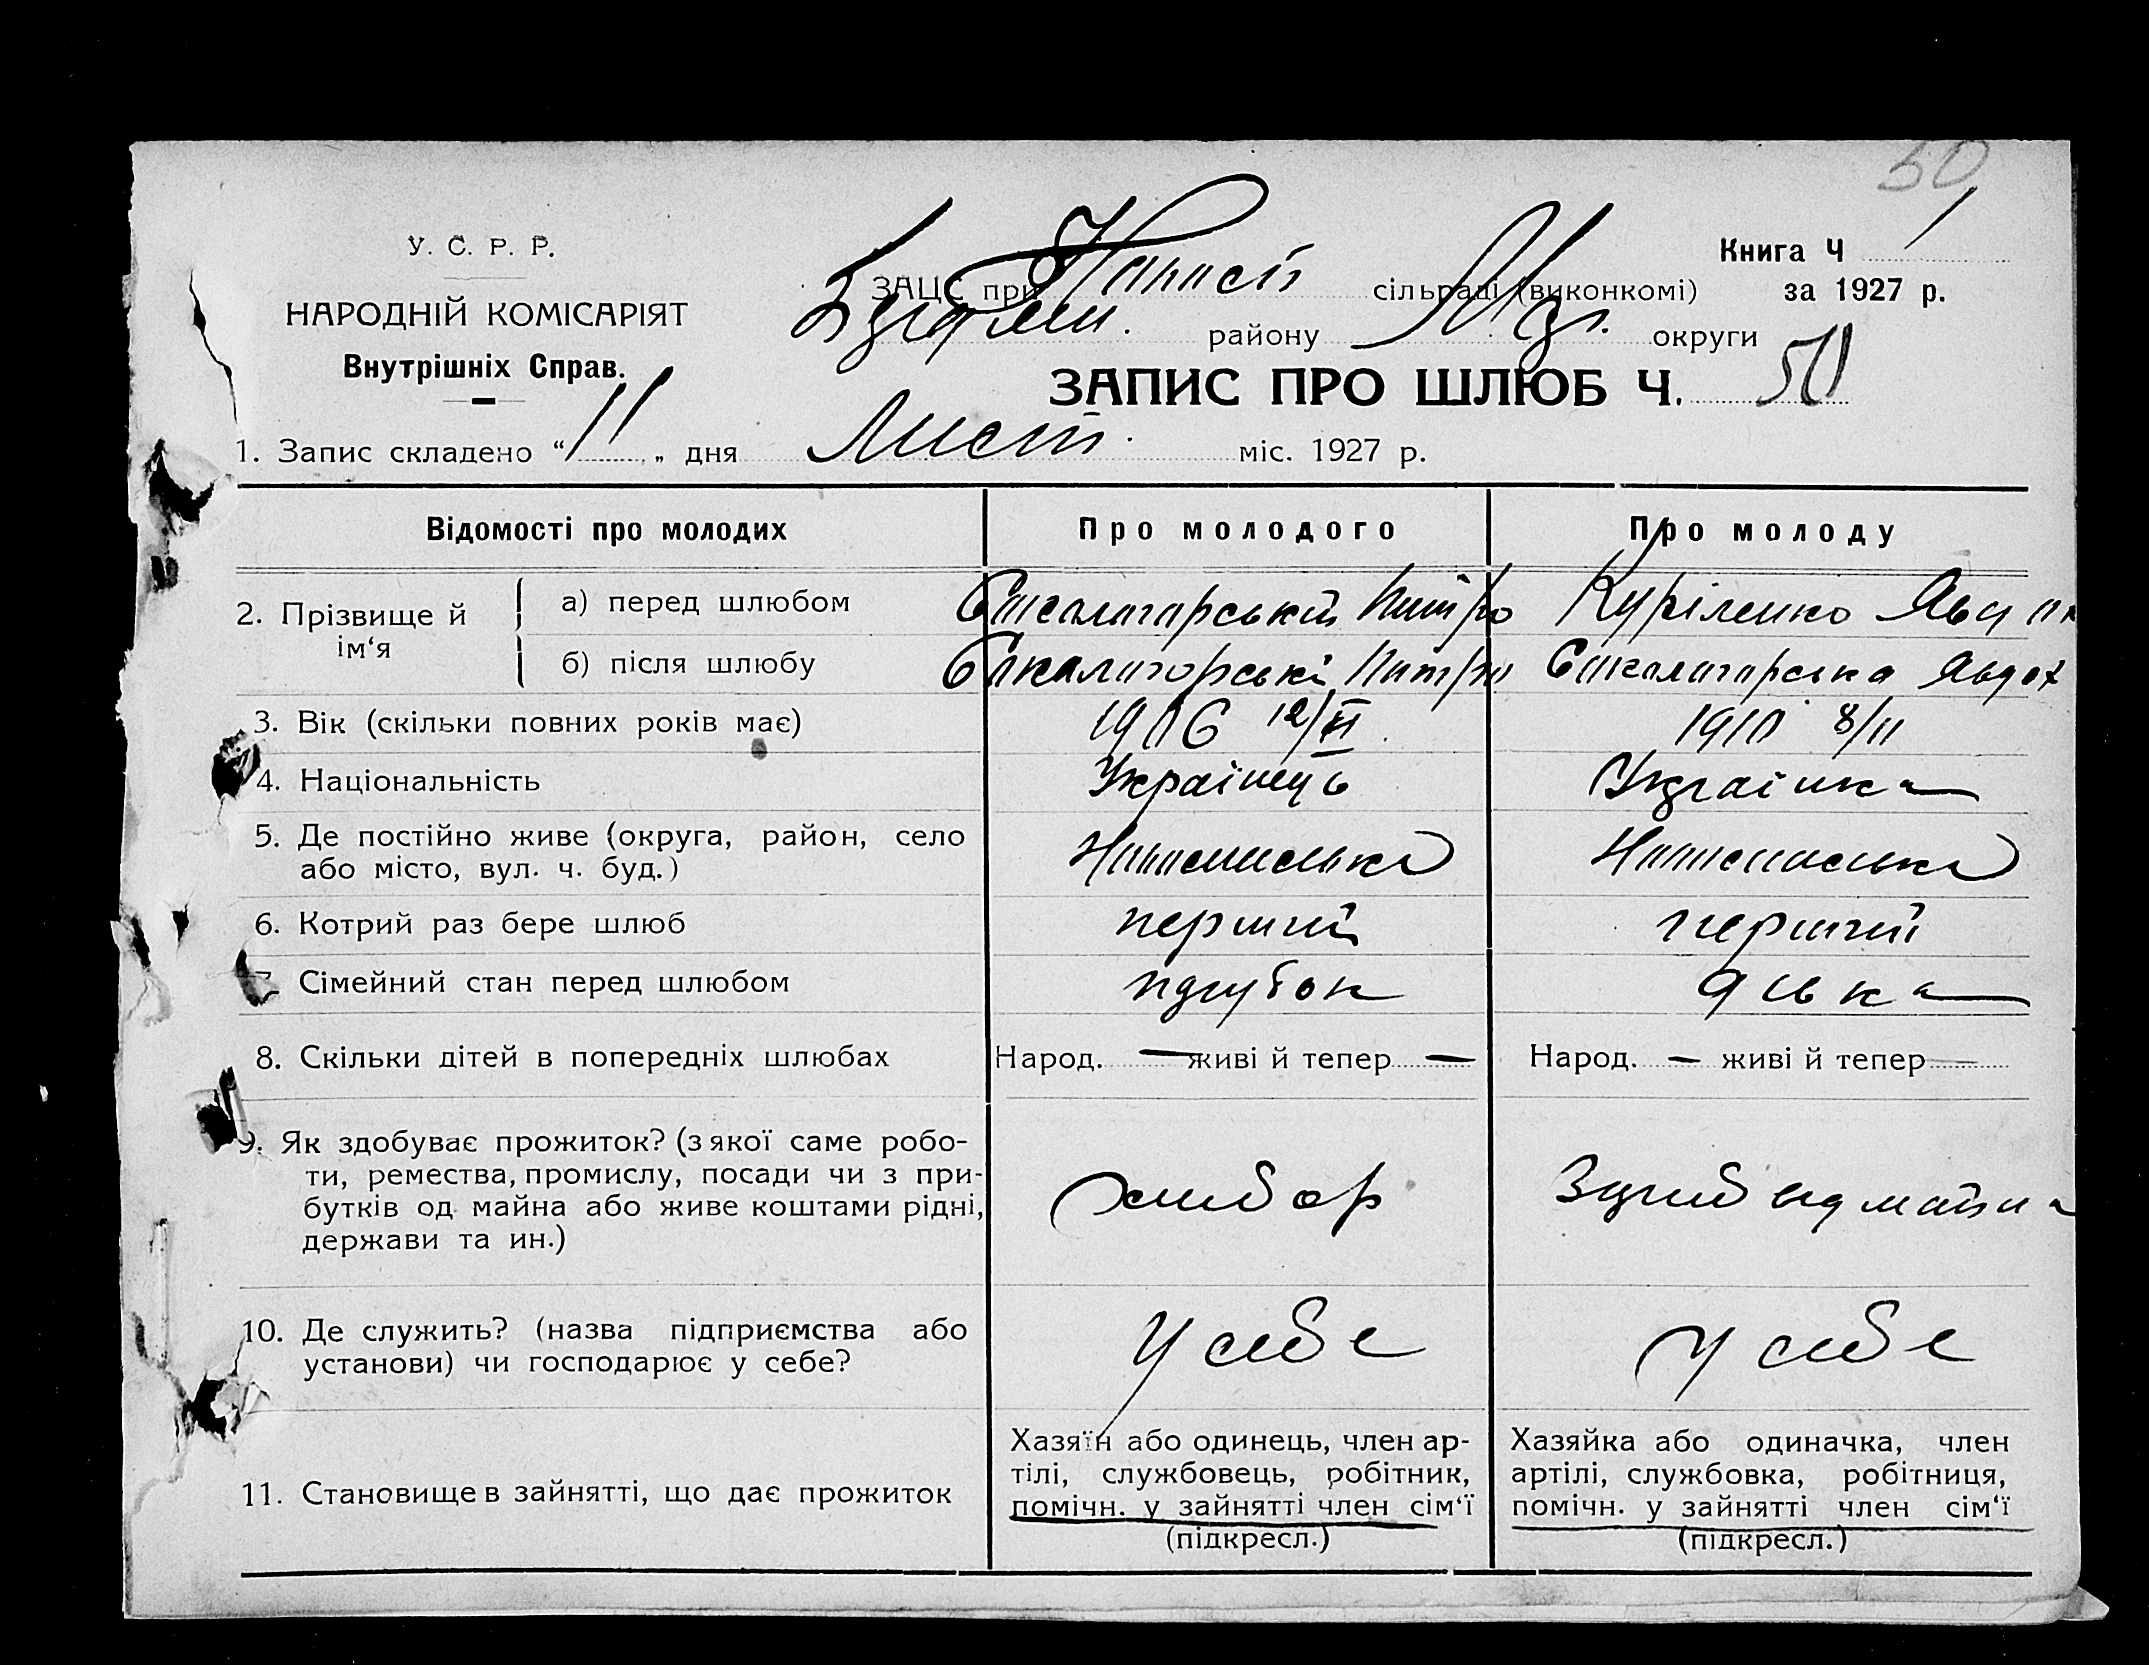 50
У. С. Р. Р.
НАРОДНІЙ КОМІСАРІЯТ
Внутрішніх Справ.
ЗАЦС при сільраді (виконкомі)
району округи
Книга Ч 1
за 1927 р.
ЗАПИС ПРО ШЛЮБ Ч. 50
1. Запис складено “ 11 „ дня Лист. міс. 1927 р.
Відомості про молодих Про молодого Про молоду
2. Прізвище й ім‘я
а) перед шлюбом Куріленко
б) після шлюбу
3. Вік (скільки повних років має) 1906 12/VI 1910 8/11
4. Національність Українець Українка
5. Де постійно живе (округа, район, село
або місто, вул. ч. буд.)
6. Котрий раз бере шлюб перший перший
7. Сімейний стан перед шлюбом
8. Скільки дітей в попередніх шлюбах Народ. — живі й тепер — Народ. — живі й тепер —
9. Як здобуває прожиток? (з якої саме робо-
ти, ремества, промислу, посади чи з при-
бутків од майна або живе коштами рідні,
держави та ин.)
хлібор
10. Де служить? (назва підприємства або
установи) чи господарює у себе?
у себе у себе
11. Становище в зайнятті, що дає прожиток
Хазяїн або одинець, член ар-
тілі, службовець, робітник,
помічн. у зайнятті член сім‘ї
(підкресл.)
Хазяйка або одиначка, член
артілі, службовка, робітниця,
помічн. у зайнятті член сім‘ї
(підкресл.)